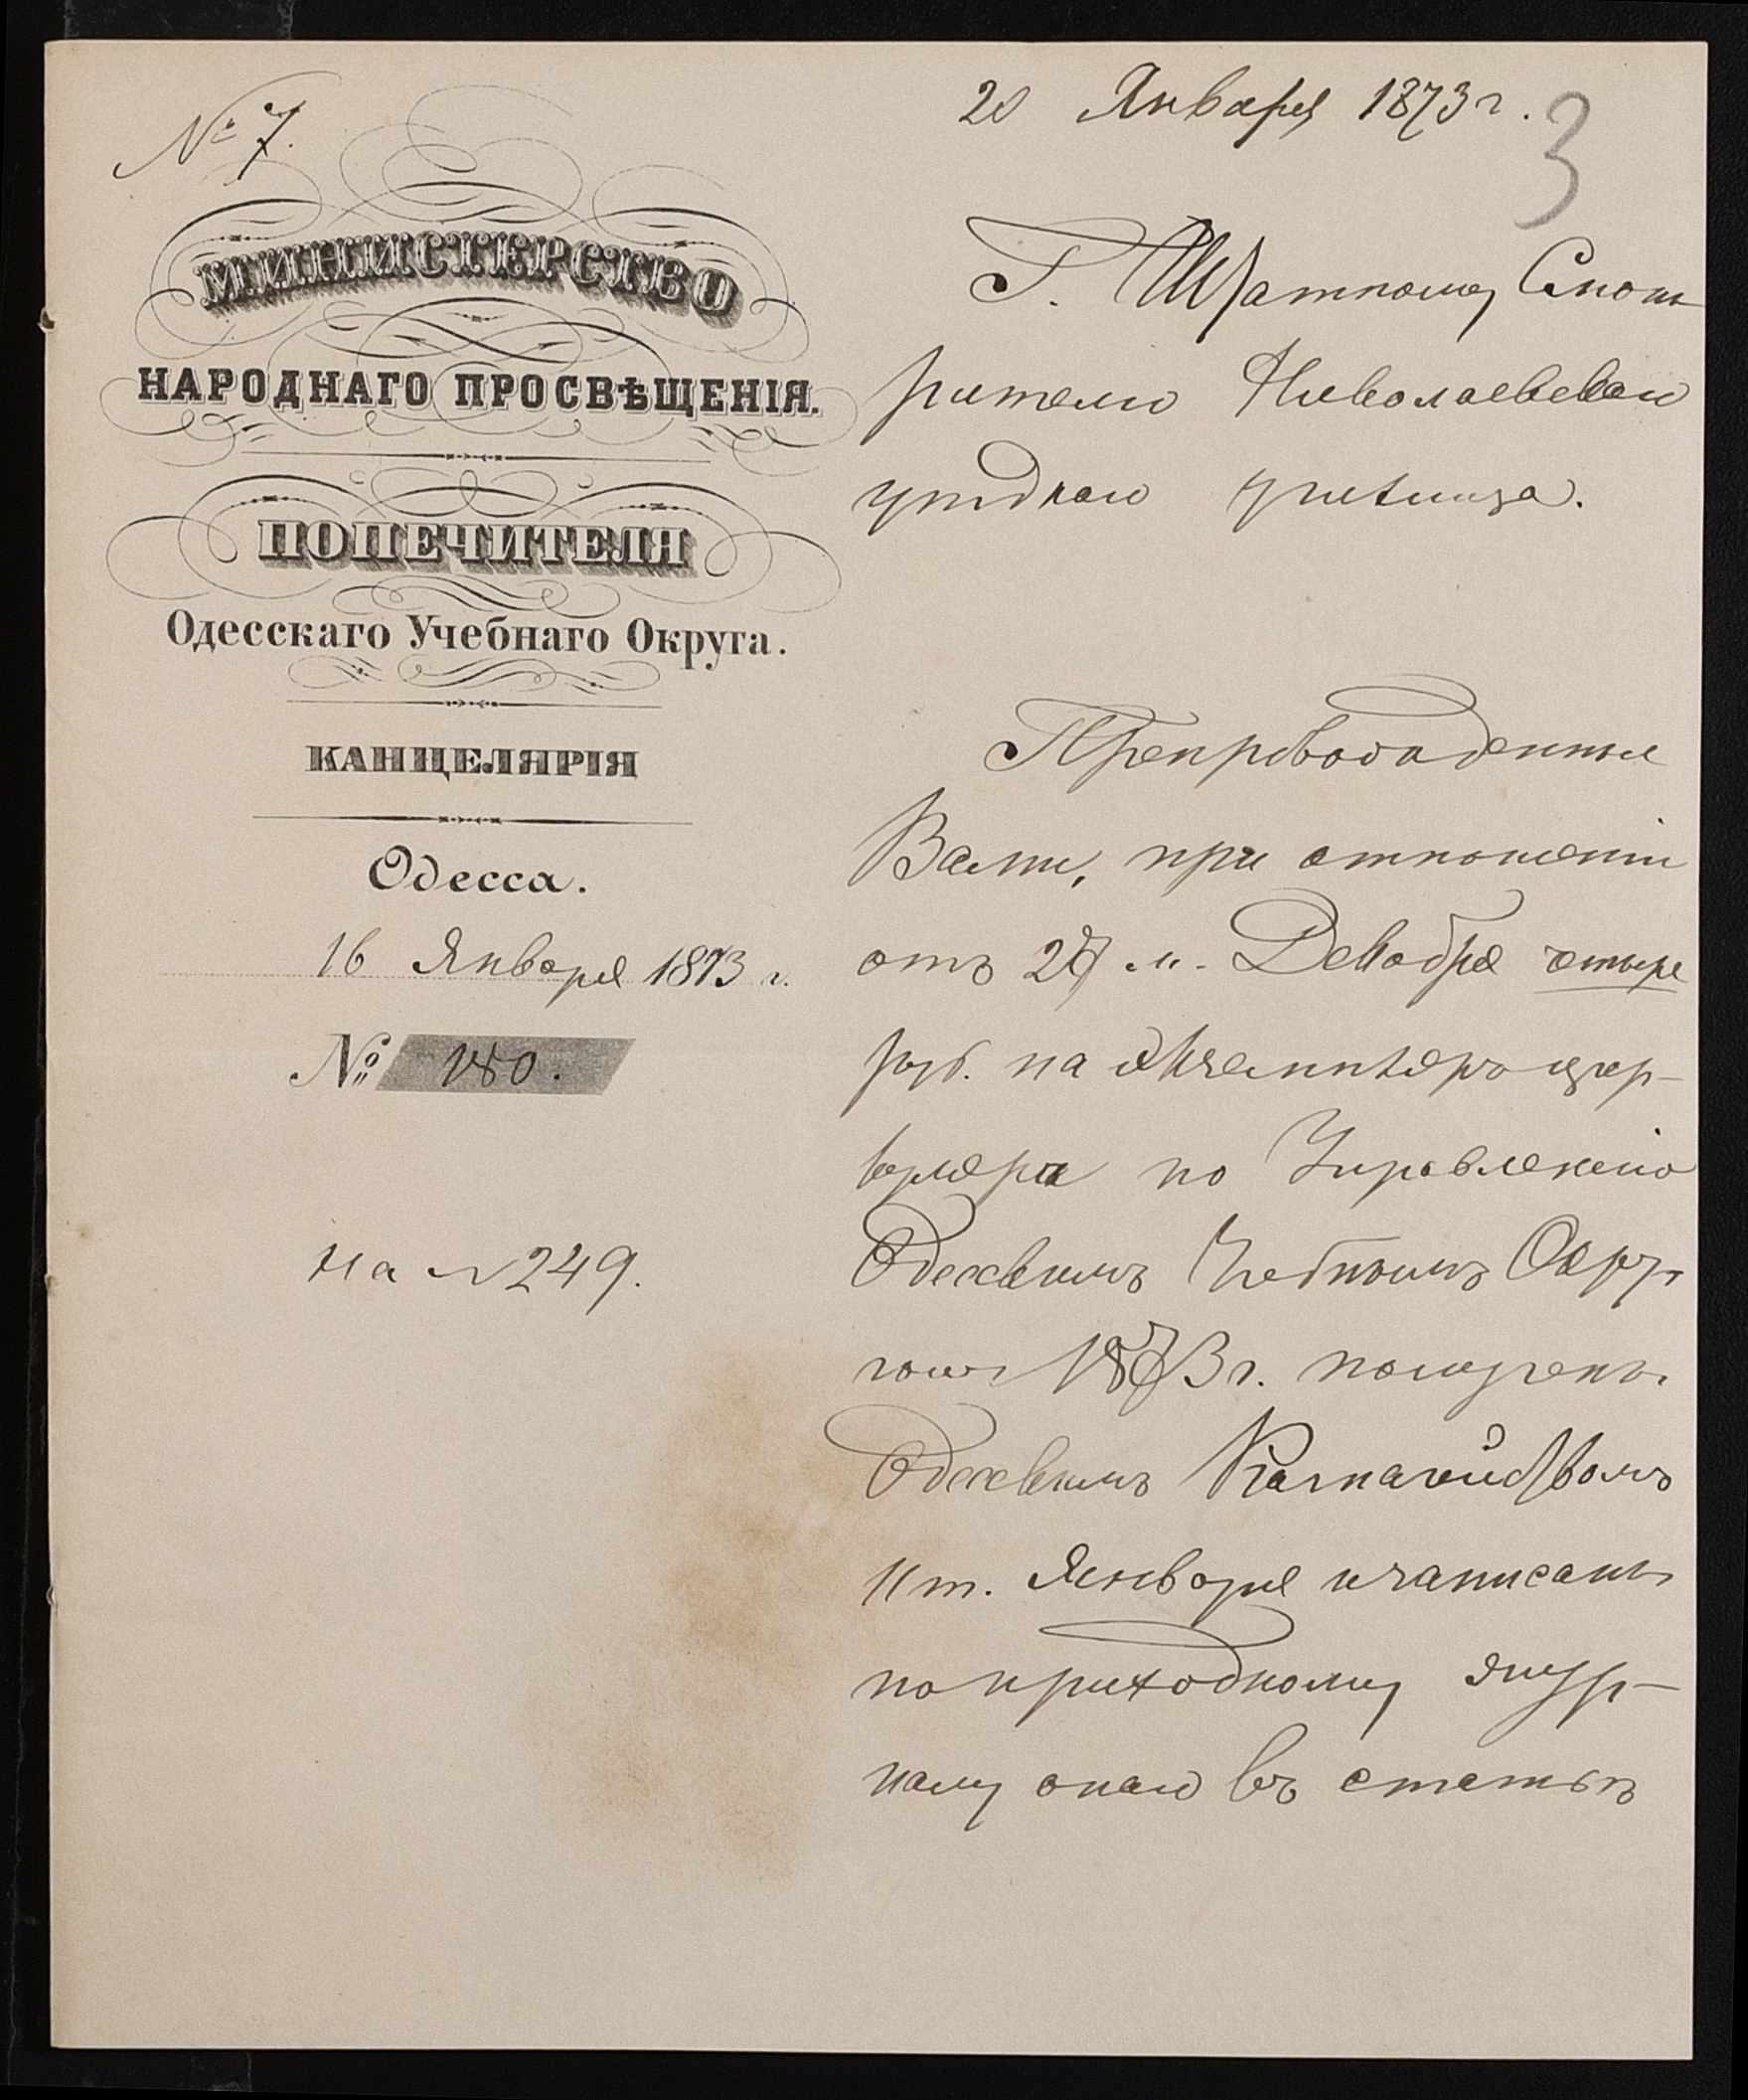 № 7.
20 Января 1873 г.
3
МИНИСТЕРСТВО
НАРОДНАГО ПРОСВѢЩЕНІЯ.
ПОПЕЧИТЕЛЯ
Одесскаго Учебнаго Округа.
КАНЦЕЛЯРІЯ
Одесса.
16 Января 1873 г.
№ 180.
На № 249.
Г. Штатному Смот-
рителю Николаевскаго
уѣзднаго училища.
Препровожденные
Вами, при отношеніи
отъ 27 м. Декабря четыре
руб. на экземпляръ цир-
куляра по Управленію
Одесскимъ Учебнымъ Окру-
гомъ 1873 г. получены
Одесскимъ Казначействомъ
11 т. Января и записаны
по приходному жур-
налу онаго въ статьѣ